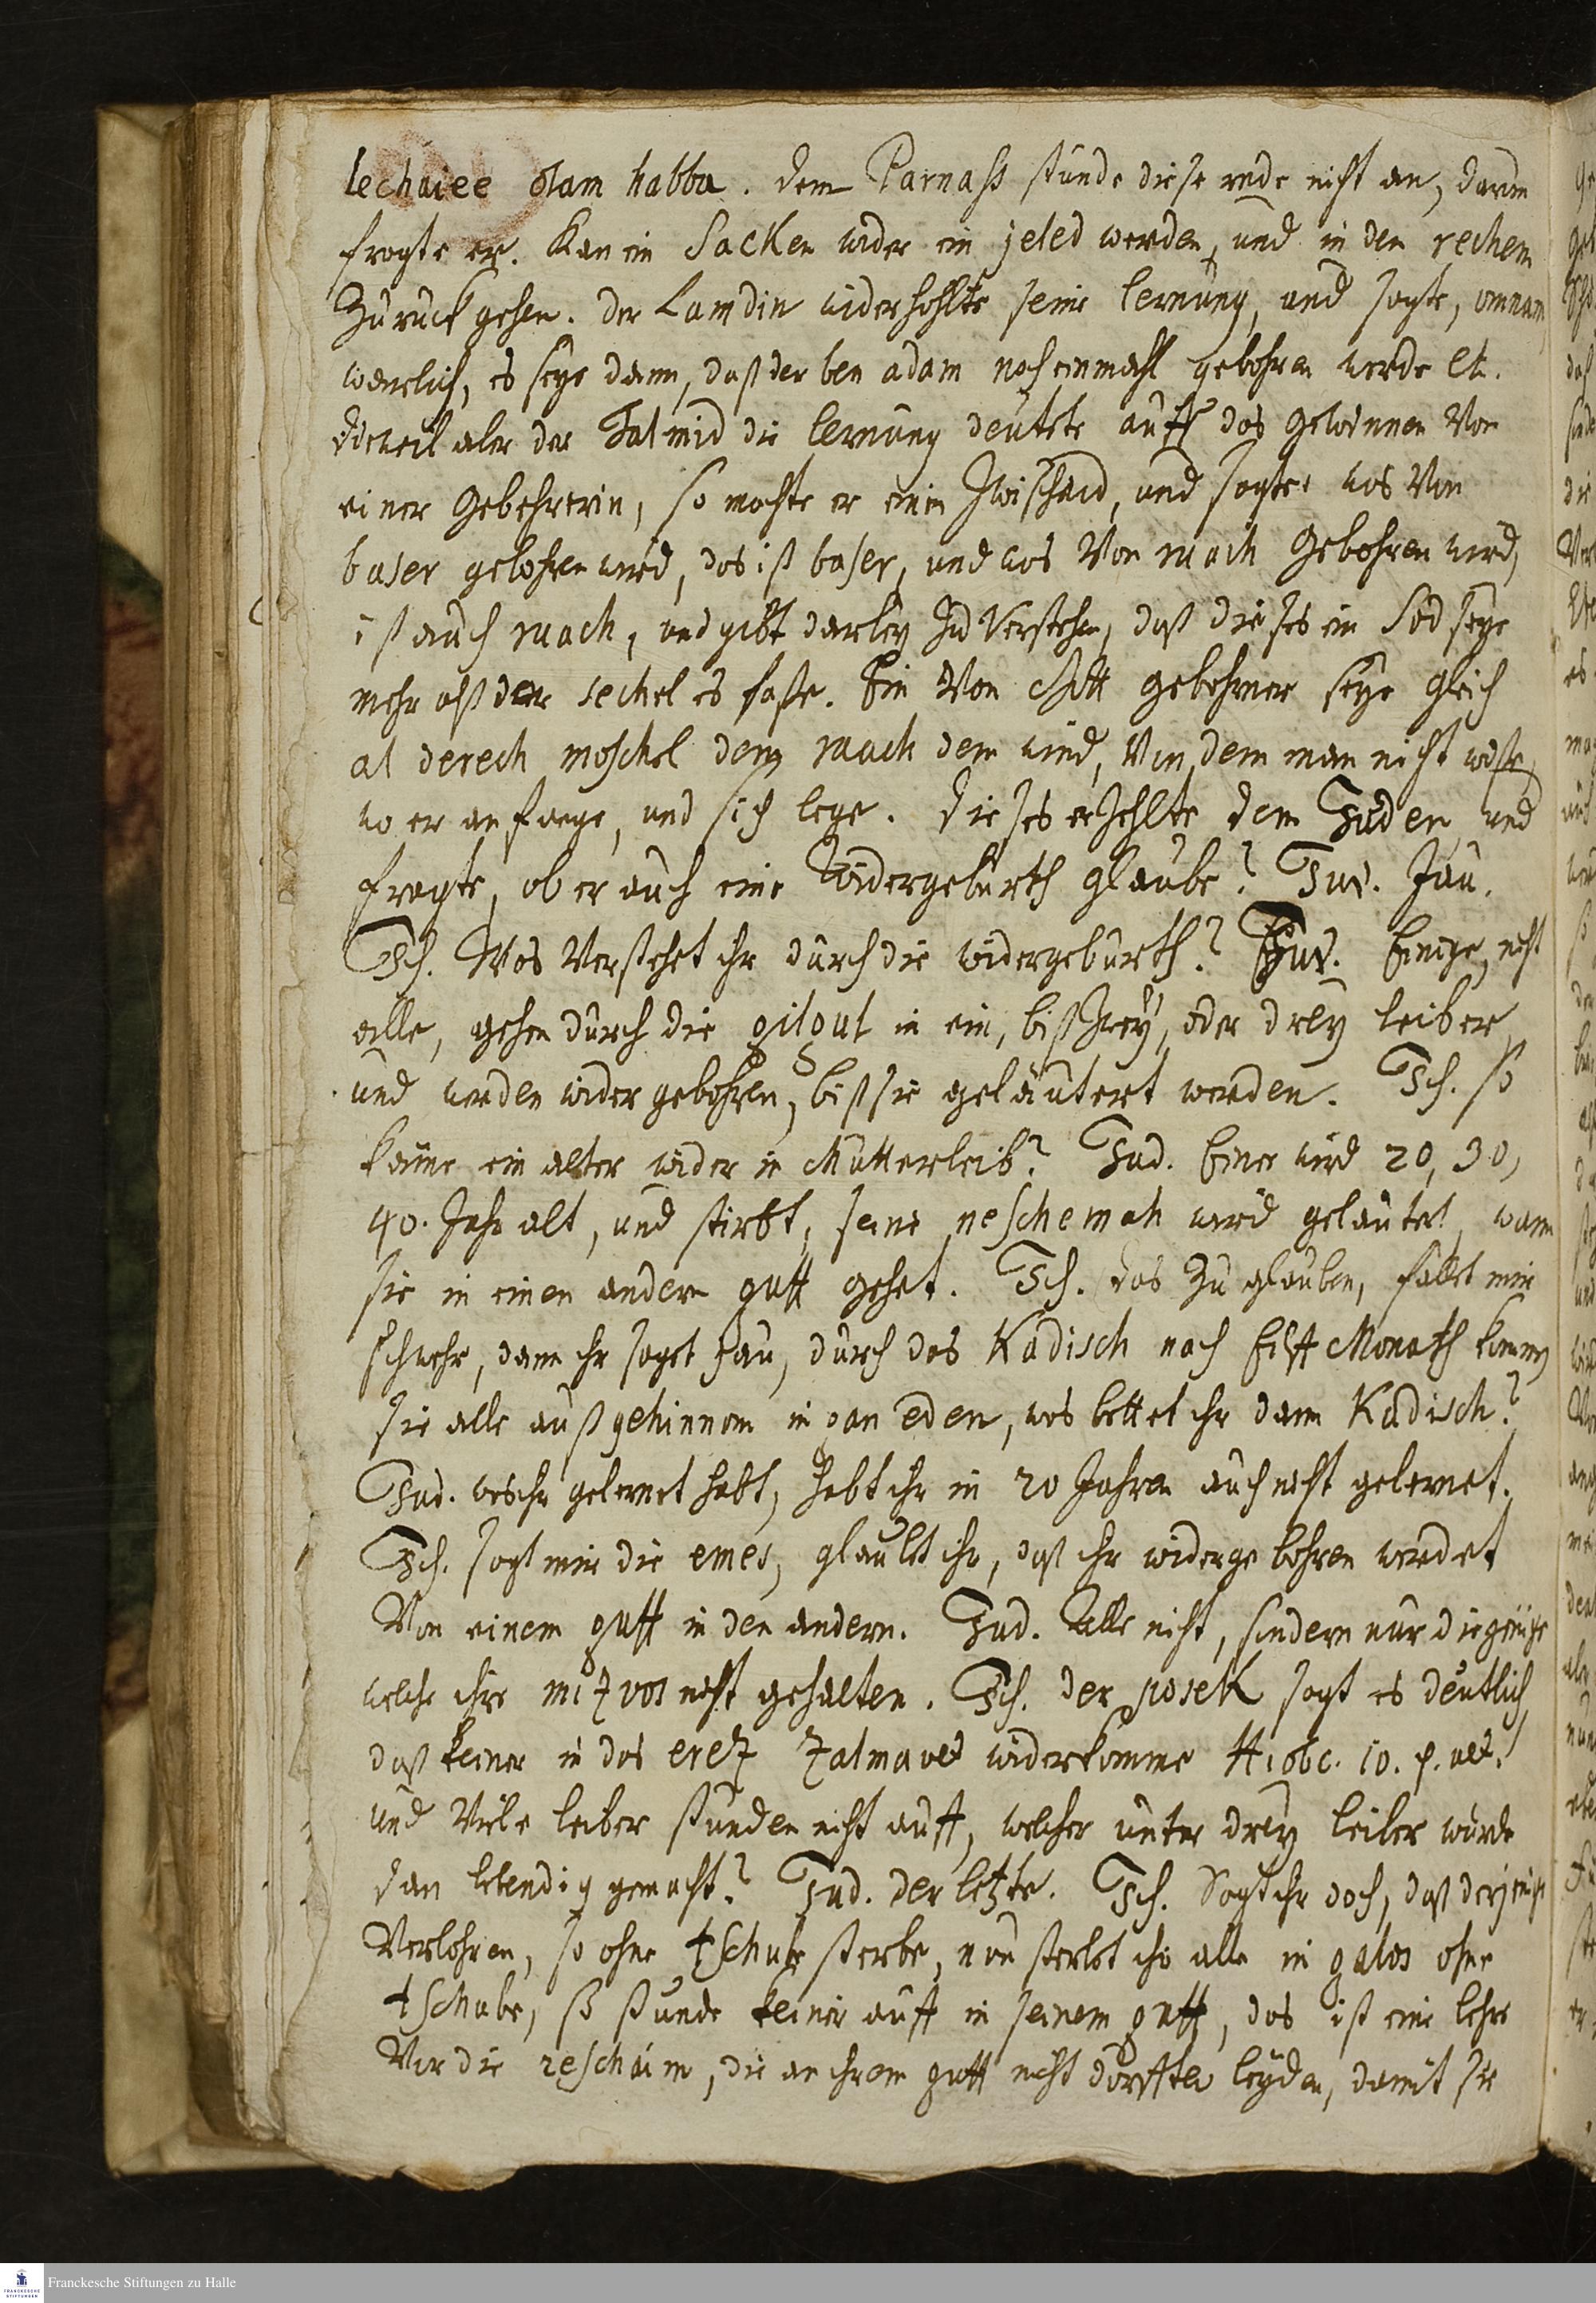 lechaiee olam habba. dem Parnass stunde diese rede nicht an, darum
fragte er. Kan ein Sacken wider ein jeled werden, und in den rechem
Zuruck gehen. der Lamdin widerhohlte seine lernung, und sagte, omnam
warlich, es seye dann, daß der ben adam noch einmahl gebohren werde etc.
dieweil aber der Talmid die lernung deutete auff das gewinnen Von
einer Gebehrerin, so machte er einen Zwischeid, und sagte: was Von
baser gebohren wird, das ist baser, und was Von ruach Gebohren wird,
ist auch ruach, und gibt darbey Zu Verstehen, daß dieses ein Sod seye
mehr alß der sechel es fasse. Ein Von Gott gebohrner seye gleich
al derech moschel dem ruach dem wind, Von dem man nicht wisse,
wo er anfange, und sich lege. dieses erzehlte dem Juden, und
fragte, ob er auch eine Widergeburth glaube? Jud. Jau.
Ich. Was Verstehet ihr durch die widergeburth? Jud. Einige, nicht
alle, gehen durch die gilgul in ein, biß zwey, oder drey leiber,
und werden wider gebohren, biß sie geläutert werden. Ich. so
käme ein alter wider in Mutterleib? Jud. Einer wird 20, 30,
40. Jahr alt, und stirbt, seine neschemah wird geläutert, wann
sie in einen andern guff gehet. Ich. das Zu glauben, fallet mir
schwehr, dann ihr saget jau, durch das Kadisch nach Eilff Monath kommen
sie alle auß gehinnom in gan eden, was bettet ihr dann Kadisch?
Jud. was ihr gelernet habt, habt ihr in 20 Jahren auch nicht gelernet.
Ich. sagt mir die emes, glaubt ihr, daß ihr widergebohren werdet
Von einem guff in den andern. Jud. Alle nicht, sondern nur diejenige
welche ihre mizvos nicht gehalten. Ich. der posek sagt es deutlich,
daß keiner in das erez zalmaves widerkomme Hiob c. 10. p. ult.
und Viele leiber stunden nicht auff, welcher unter drey leiber würde
dan lebendig gemacht? Jud. der letzte. Ich. Sagt ihr doch, daß derjenige
Verlohren, so ohne tschube sterbe, nun sterbt ihr alle in galos ohne
tschube, so stunde keiner auff in seinem guff, das ist eine lehre
Vor die reschaim, die an ihrem guff nicht dörfften leyden, damit sie
Franckesche Stiftungen zu Halle